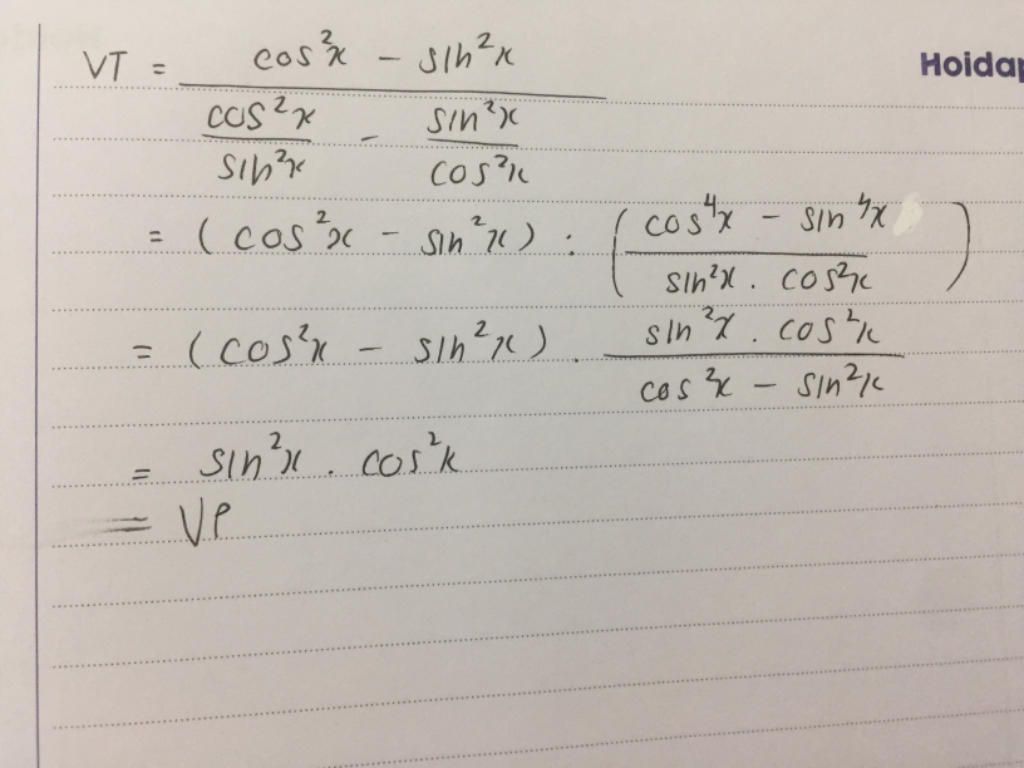 VT = (cos²x - sin²x) / (cos²x/sin²x - sin²x/cos²x)
Hoidap
= (cos²x - sin²x) : ((cos⁴x - sin⁴x) / (sin²x . cos²x))
= (cos²x - sin²x) . (sin²x . cos²x) / (cos²x - sin²x)
= sin²x . cos²x
= VP